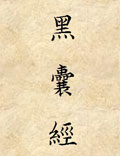 黑囊經